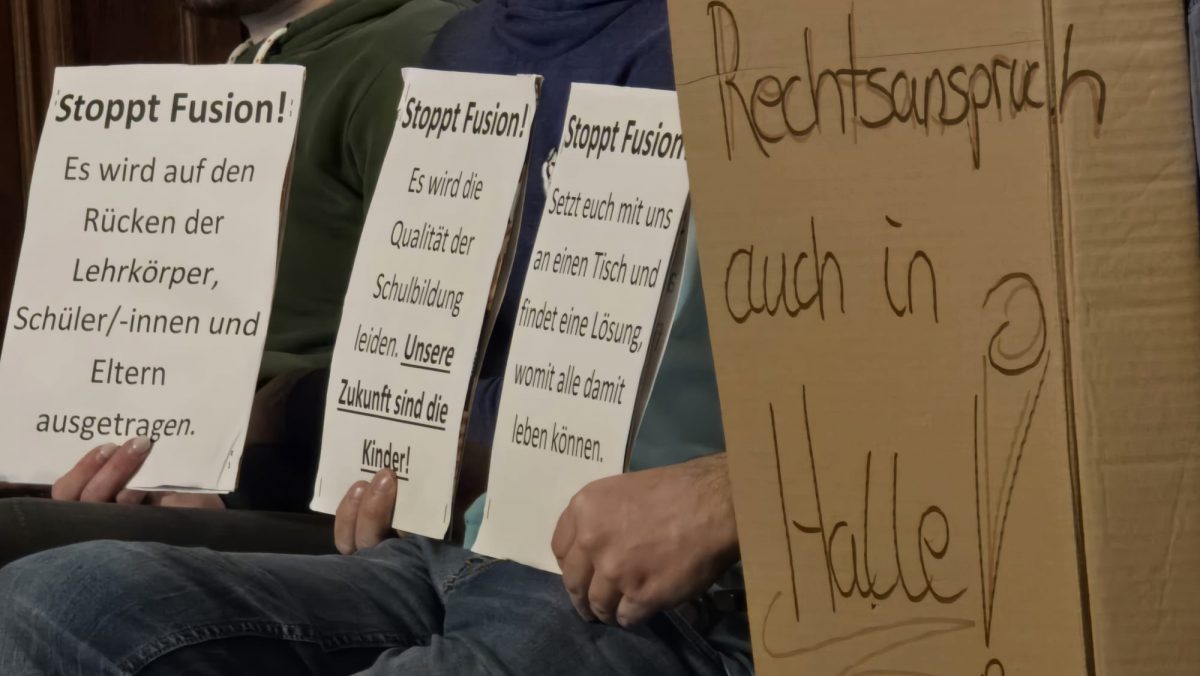 Stoppt Fusion!
Es wird auf den
Rücken der
Lehrkörper,
Schüler/-innen und
Eltern
ausgetragen.
Stoppt Fusion!
Es wird die
Qualität der
Schulbildung
leiden. Unsere
Zukunft sind die
Kinder!
Stoppt Fusion
Setzt euch mit uns
an einen Tisch und
findet eine Lösung,
womit alle damit
leben können.
Rechtsanspruch
auch in
Halle!